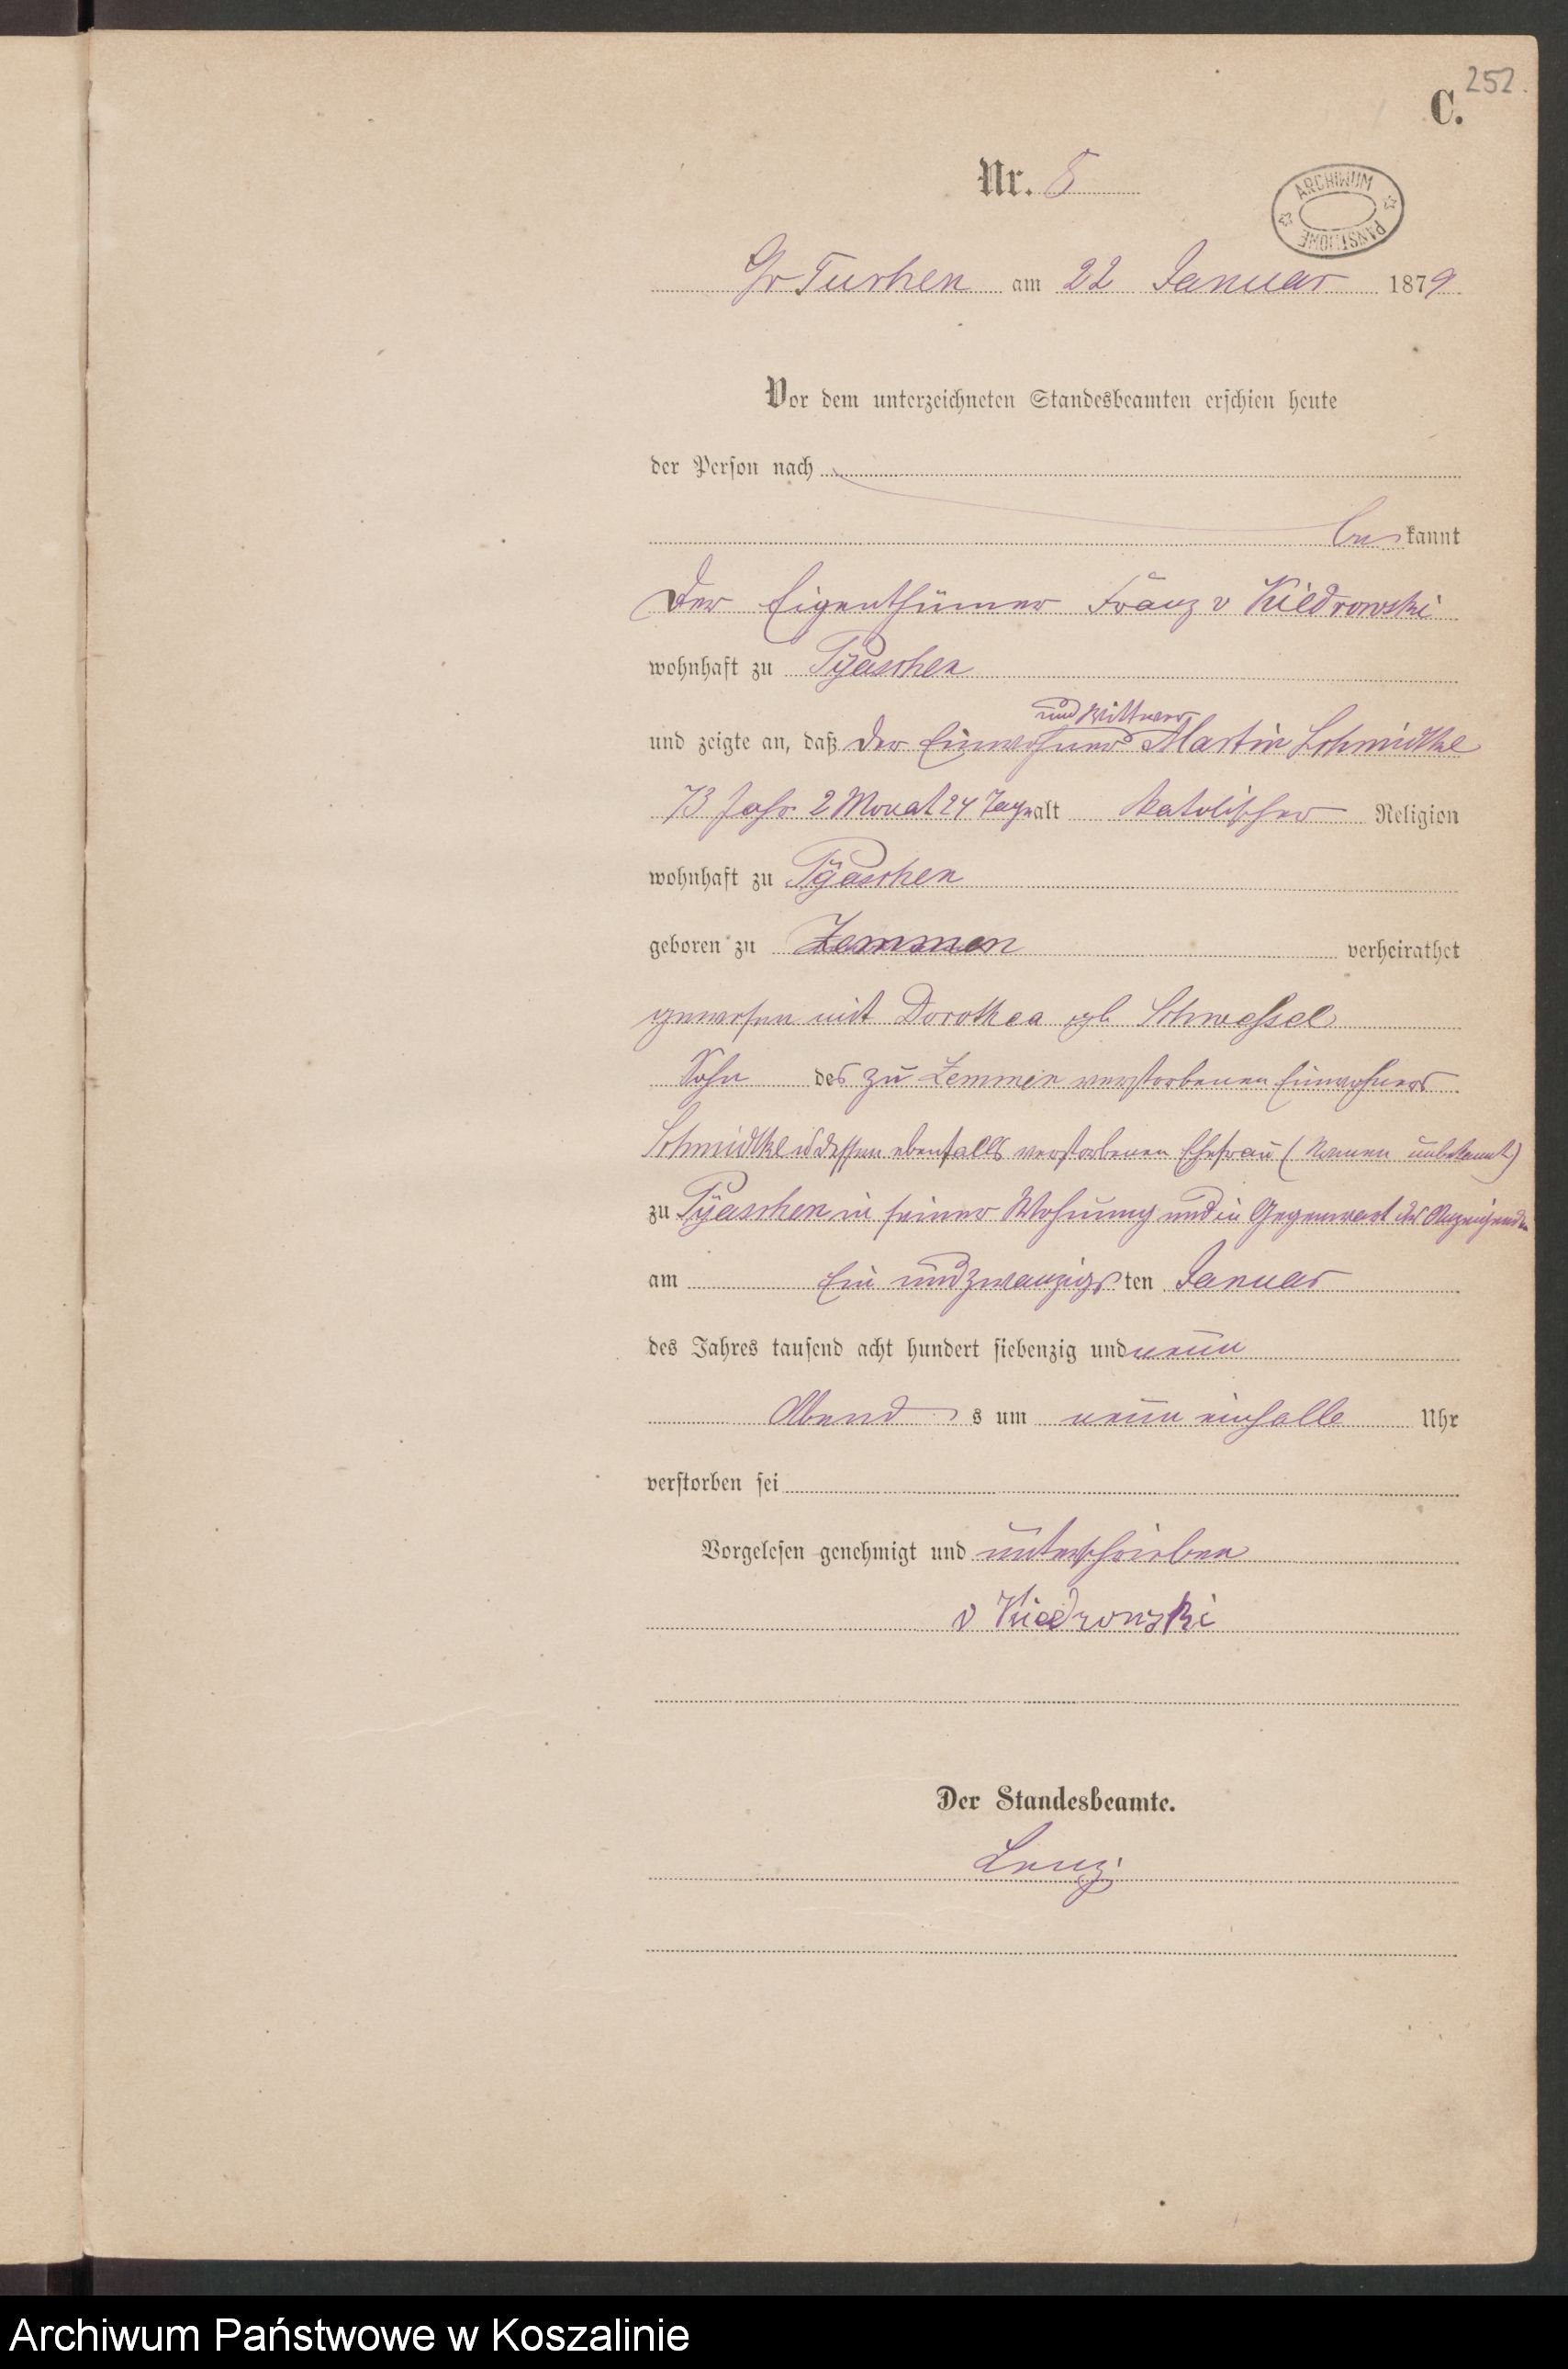 252.
C.
Nr. 5
ARCHIWUM PAŃSTWOWE
Gr Tuchen am 22 Januar 1879
Vor dem unterzeichneten Standesbeamten erschien heute
der Person nach
be kannt
Der Eigenthümer Franz v Kiedrowski
wohnhaft zu Pyaschen
und Wittwer
und zeigte an, daß der Einwohner Martin Schmidtke
73 Jahr 2 Monat 24 Tage alt katolischer Religion
wohnhaft zu Pyaschen
geboren zu Zemmen verheirathet
gewesen mit Dorothea geb Schwessel
Sohn des zu Zemmen verstorbenen Einwohners
Schmidtke u dessen ebenfalls verstorbenen Ehefrau (Namen unbekannt)
zu Pyaschen in seiner Wohnung und in Gegenwart des Anzeigenden
am Ein und zwanzigsten Januar
des Jahres tausend acht hundert siebenzig und neun
Abend s um neun einhalb Uhr
verstorben sei
Vorgelesen genehmigt und unterschrieben
v Kiedrowski
Der Standesbeamte.
Lenz
Archiwum Państwowe w Koszalinie